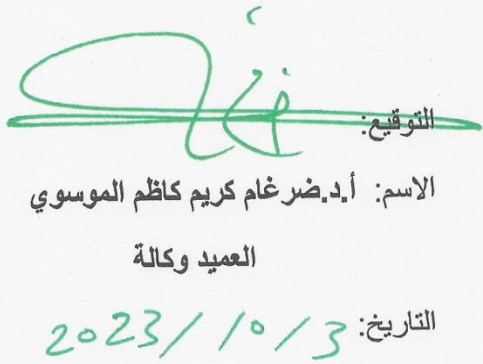 التوقيع:
الاسم: أ.د.ضرغام كريم كاظم الموسوي
العميد وكالة
التاريخ: 2023/10/3